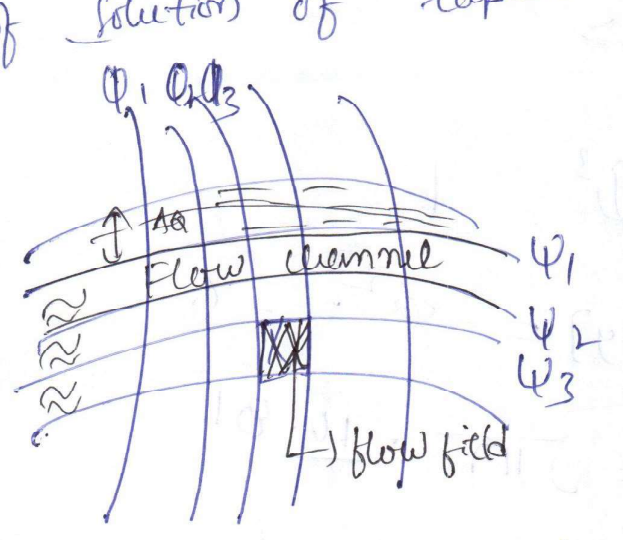 of solution of
φ1 φ2 φ3
ΔQ
Flow channel
ψ1
ψ2
ψ3
flow field